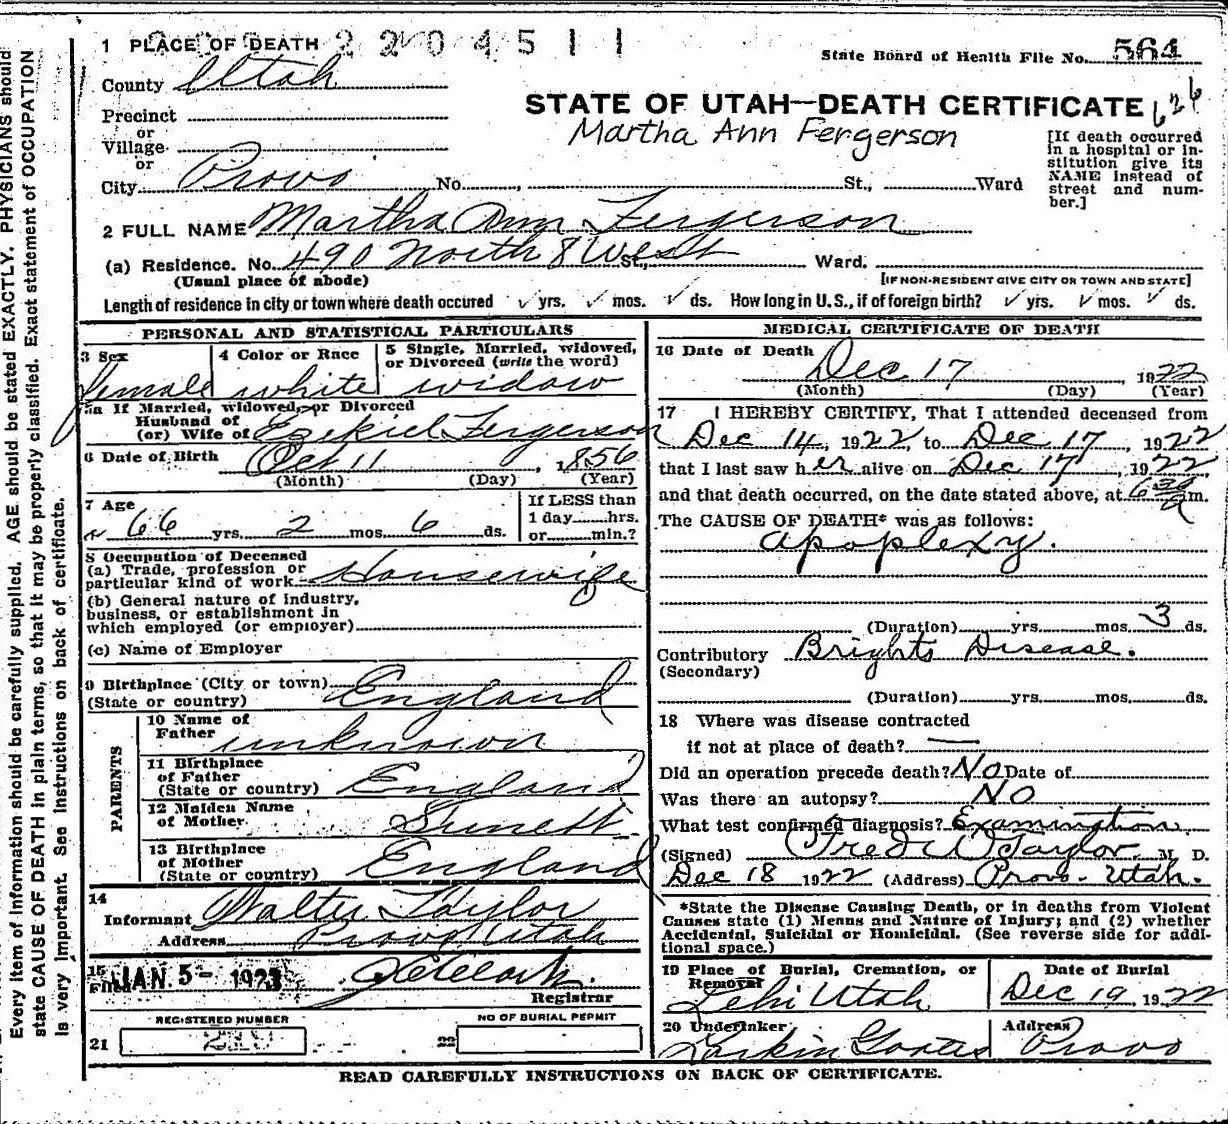 1 PLACE OF DEATH 2204511
State Board of Health File No. 564
County Utah
STATE OF UTAH—DEATH CERTIFICATE 626
Precinct
Martha Ann Fergerson
or
Village
or
City Provo No. , St., Ward
[If death occurred
in a hospital or in-
stitution give its
NAME instead of
street and num-
ber.]
2 FULL NAME Martha Ann Fergerson
(a) Residence. No. 490 North 8 West St., Ward.
(Usual place of abode) [IF NON-RESIDENT GIVE CITY OR TOWN AND STATE]
Length of residence in city or town where death occured ✓ yrs. ✓ mos. ✓ ds. How long in U. S., if of foreign birth? ✓ yrs. ✓ mos. ✓ ds.
PERSONAL AND STATISTICAL PARTICULARS
3 Sex
female
4 Color or Race
white
5 Single, Married, widowed,
or Divorced (write the word)
widow
5a If Married, widowed, or Divorced
Husband of
(or) Wife of Ezekiel Fergerson
6 Date of Birth Oct 11, 1856
(Month) (Day) (Year)
7 Age
66 yrs. 2 mos. 6 ds.
If LESS than
1 day hrs.
or min.?
8 Occupation of Deceased
(a) Trade, profession or
particular kind of work Housewife
(b) General nature of industry,
business, or establishment in
which employed (or employer)
(c) Name of Employer
9 Birthplace (City or town)
(State or country) England
PARENTS
10 Name of
Father unknown
11 Birthplace
of Father
(State or country) England
12 Maiden Name
of Mother
13 Birthplace
of Mother
(State or country) England
14
Informant Walter Taylor
Address Provo Utah
15
Filed JAN. 5 - 1923
Registrar
REGISTERED NUMBER
21
NO OF BURIAL PERMIT
22
MEDICAL CERTIFICATE OF DEATH
16 Date of Death
Dec 17, 1922
(Month) (Day) (Year)
17 I HEREBY CERTIFY, That I attended deceased from
Dec 14, 1922, to Dec 17, 1922
that I last saw her alive on Dec 17, 1922
and that death occurred, on the date stated above, at 6 30 a m.
The CAUSE OF DEATH* was as follows:
apoplexy.
(Duration) yrs. mos. 3 ds.
Contributory Brights Disease.
(Secondary)
(Duration) yrs. mos. ds.
18 Where was disease contracted
if not at place of death? —
Did an operation precede death? No Date of
Was there an autopsy? No
What test confirmed diagnosis? Examination
(Signed) Fred W Taylor, M. D.
Dec 18 1922 (Address) Provo - Utah.
*State the Disease Causing Death, or in deaths from Violent
Causes state (1) Menns and Nature of Injury; and (2) whether
Accidental, Suicidal or Homicidal. (See reverse side for addi-
tional space.)
19 Place of Burial, Cremation, or
Removal
Lehi Utah
Date of Burial
Dec 19, 1922
20 Undertaker
Larkin
Address
Provo
READ CAREFULLY INSTRUCTIONS ON BACK OF CERTIFICATE.
Every item of information should be carefully supplied. AGE should be stated EXACTLY. PHYSICIANS should
state CAUSE OF DEATH in plain terms, so that it may be properly classified. Exact statement of OCCUPATION
is very important. See instructions on back of certificate.